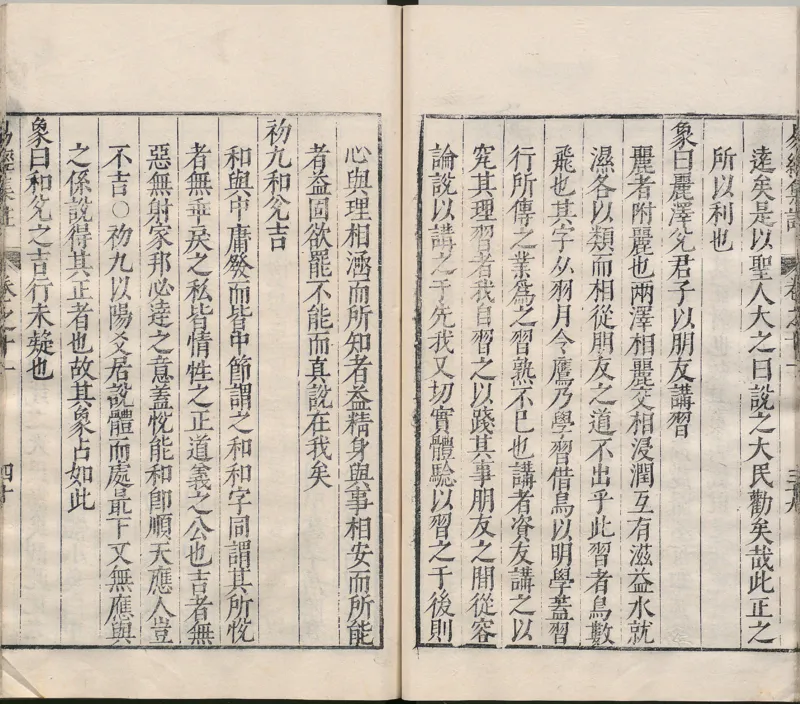 易經集註
卷之十一
三十九
達矣是以聖人大之曰說之大民勸矣哉此正之
所以利也
象曰麗澤兌君子以朋友講習
麗者附麗也兩澤相麗交相浸潤互有滋益水就
濕各以類而相從朋友之道不出乎此習者鳥數
飛也其字从羽月令鷹乃學習借鳥以明學蓋習
行所傳之業為之習熟不已也講者資友講之以
究其理習者我自習之以踐其事朋友之間從容
論說以講之于先我又切實體驗以習之于後則
心與理相涵而所知者益精身與事相安而所能
者益固欲罷不能而真說在我矣
初九和兌吉
和與中庸發而皆中節謂之和和字同謂其所悅
者無乖戾之私皆情性之正道義之公也吉者無
惡無射家邦必達之意蓋悅能和即順天應人豈
不吉○初九以陽爻居說體而處最下又無應與
之係說得其正者也故其象占如此
象曰和兌之吉行未疑也
易經集註
卷之十一
四十